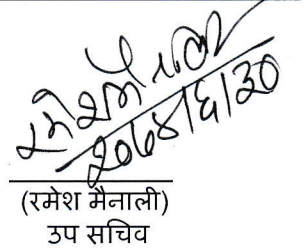 रमेश मैनाली
२०७४/६/३०
(रमेश मैनाली)
उप सचिव